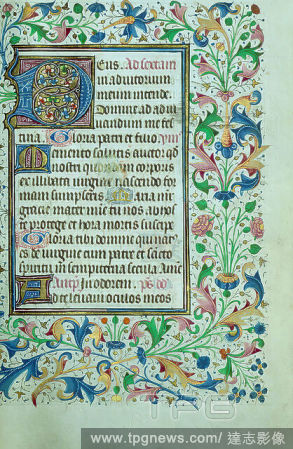 Deus. Ad sextam
in adiutorium
meum intende.
Domine ad adiu
uandum me fes
tina. Gloria patri et filio
Memento salutis auctor qd
nostri quondam corporis
ex illibata uirgine nascendo for
mam sumpseris. Maria m̄r
gracie mater mīe tu nos ab hos
te protege et hora mortis suscipe
Gloria tibi domine qui nat9
es de uirgine cum patre et sacto
spiritu in sempiterna secula Ame
Antip̄. In odorem. ps. d
Ad te leuaui oculos meos
TPG
www.tpgnews.com / 達志影像